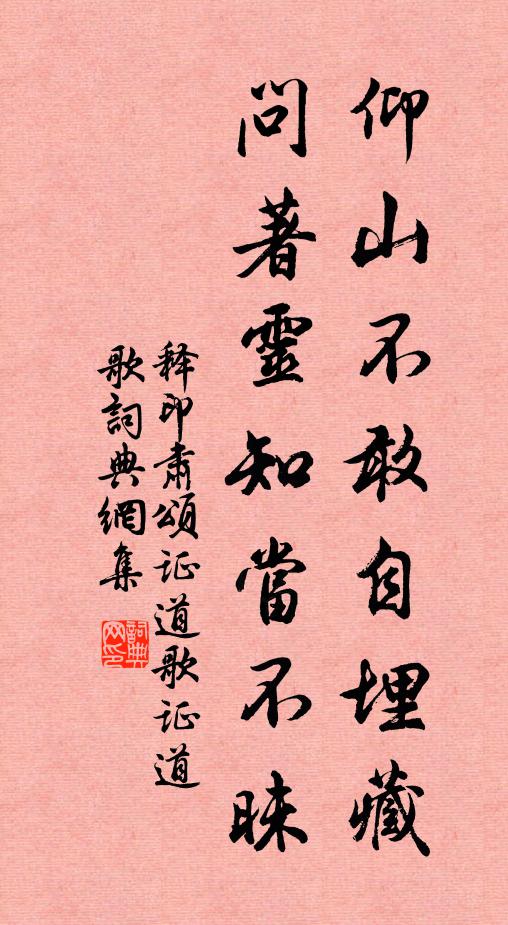 仰山不敢自埋藏
問著靈知當不昧
释印肅頌证道歌证道
歌詞典網集
詞典
网印